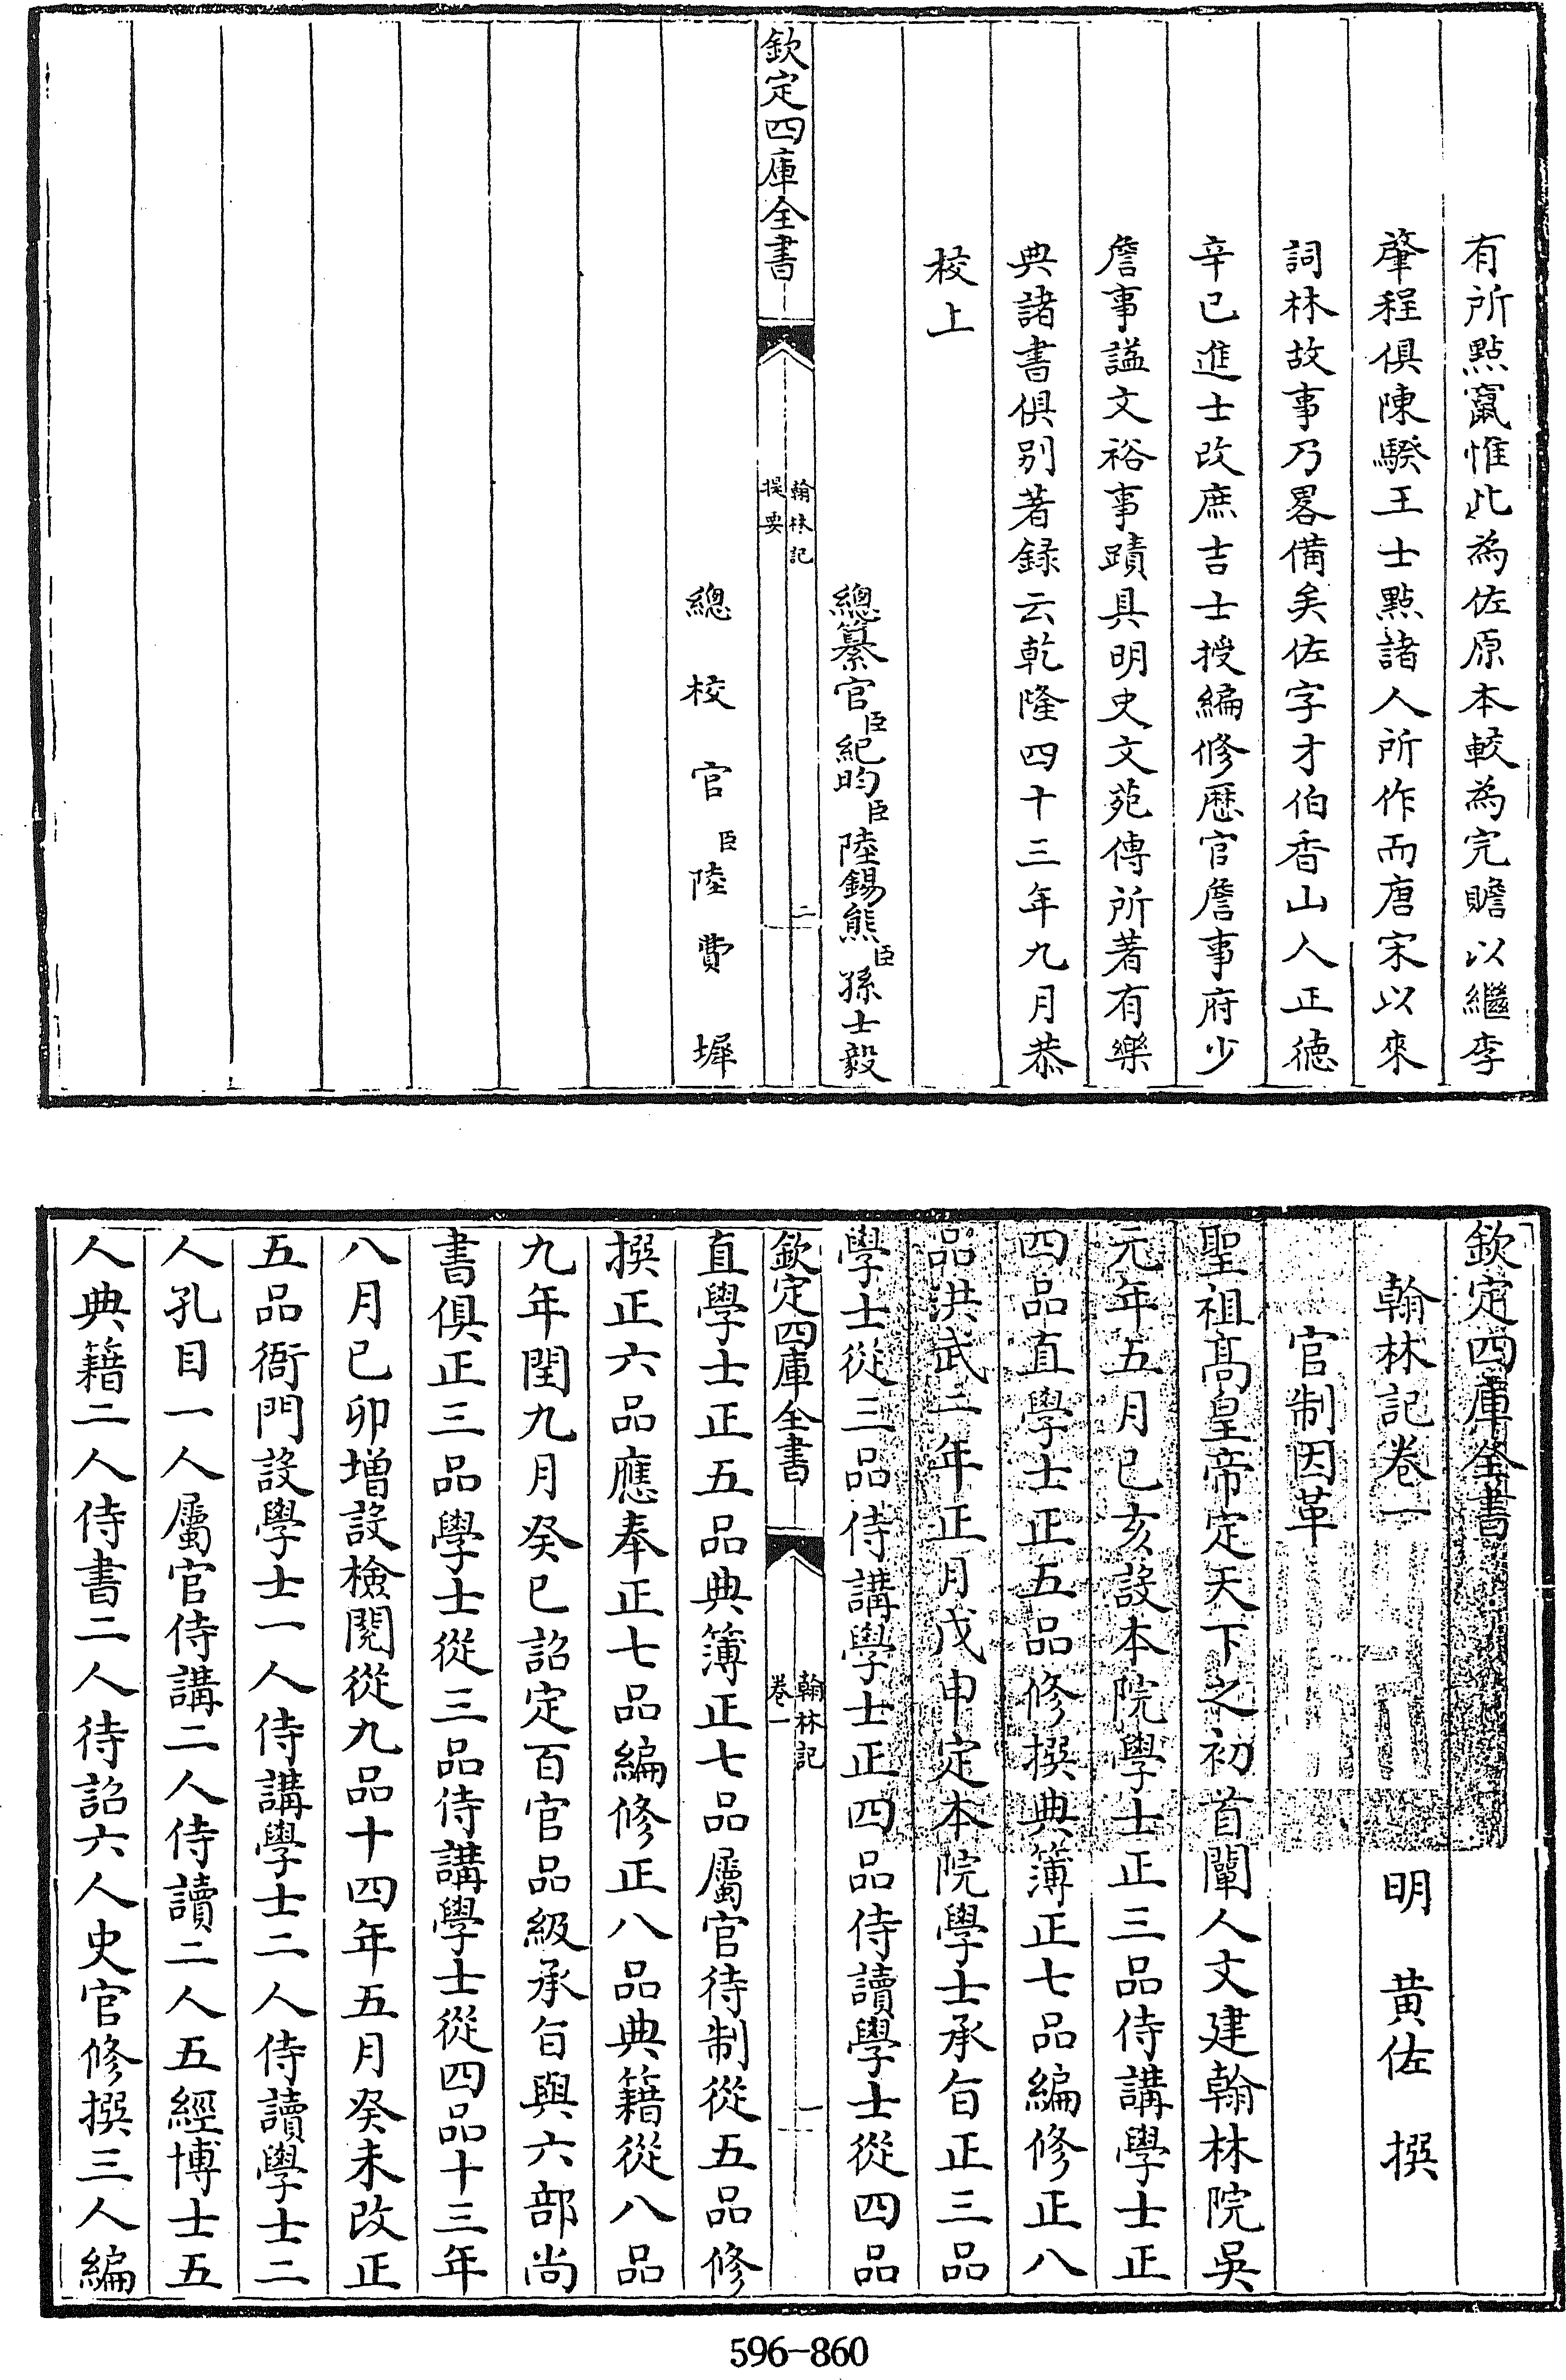 有所點竄惟此為佐原本較為完贍以繼李
肇程俱陳騤王士點諸人所作而唐宋以來
詞林故事乃畧備矣佐字才伯香山人正徳
辛巳進士改庶吉士授編修歴官詹事府少
詹事謚文裕事蹟具明史文苑傳所著有樂
典諸書俱别著録云乾隆四十三年九月恭
校上
總纂官臣紀昀臣陸錫熊臣孫士毅
欽定四庫全書
翰林記
提要
二
總校官臣陸費墀
欽定四庫全書
翰林記卷一
明 黄佐 撰
官制因革
聖祖高皇帝定天下之初首闡人文建翰林院吳
元年五月已亥設本院學士正三品侍講學士正
四品直學士正五品修撰典簿正七品編修正八
品洪武二年正月戊申定本院學士承旨正三品
學士從三品侍講學士正四品侍讀學士從四品
欽定四庫全書
翰林記
卷一
一
直學士正五品典簿正七品屬官待制從五品修
撰正六品應奉正七品編修正八品典籍從八品
九年閏九月癸已詔定百官品級承旨與六部尚
書俱正三品學士從三品侍講學士從四品十三年
八月已卯增設檢閱從九品十四年五月癸未改正
五品衙門設學士一人侍講學士二人侍讀學士二
人孔目一人屬官侍講二人侍讀二人五經博士五
人典籍二人侍書二人待詔六人史官修撰三人編
596-860